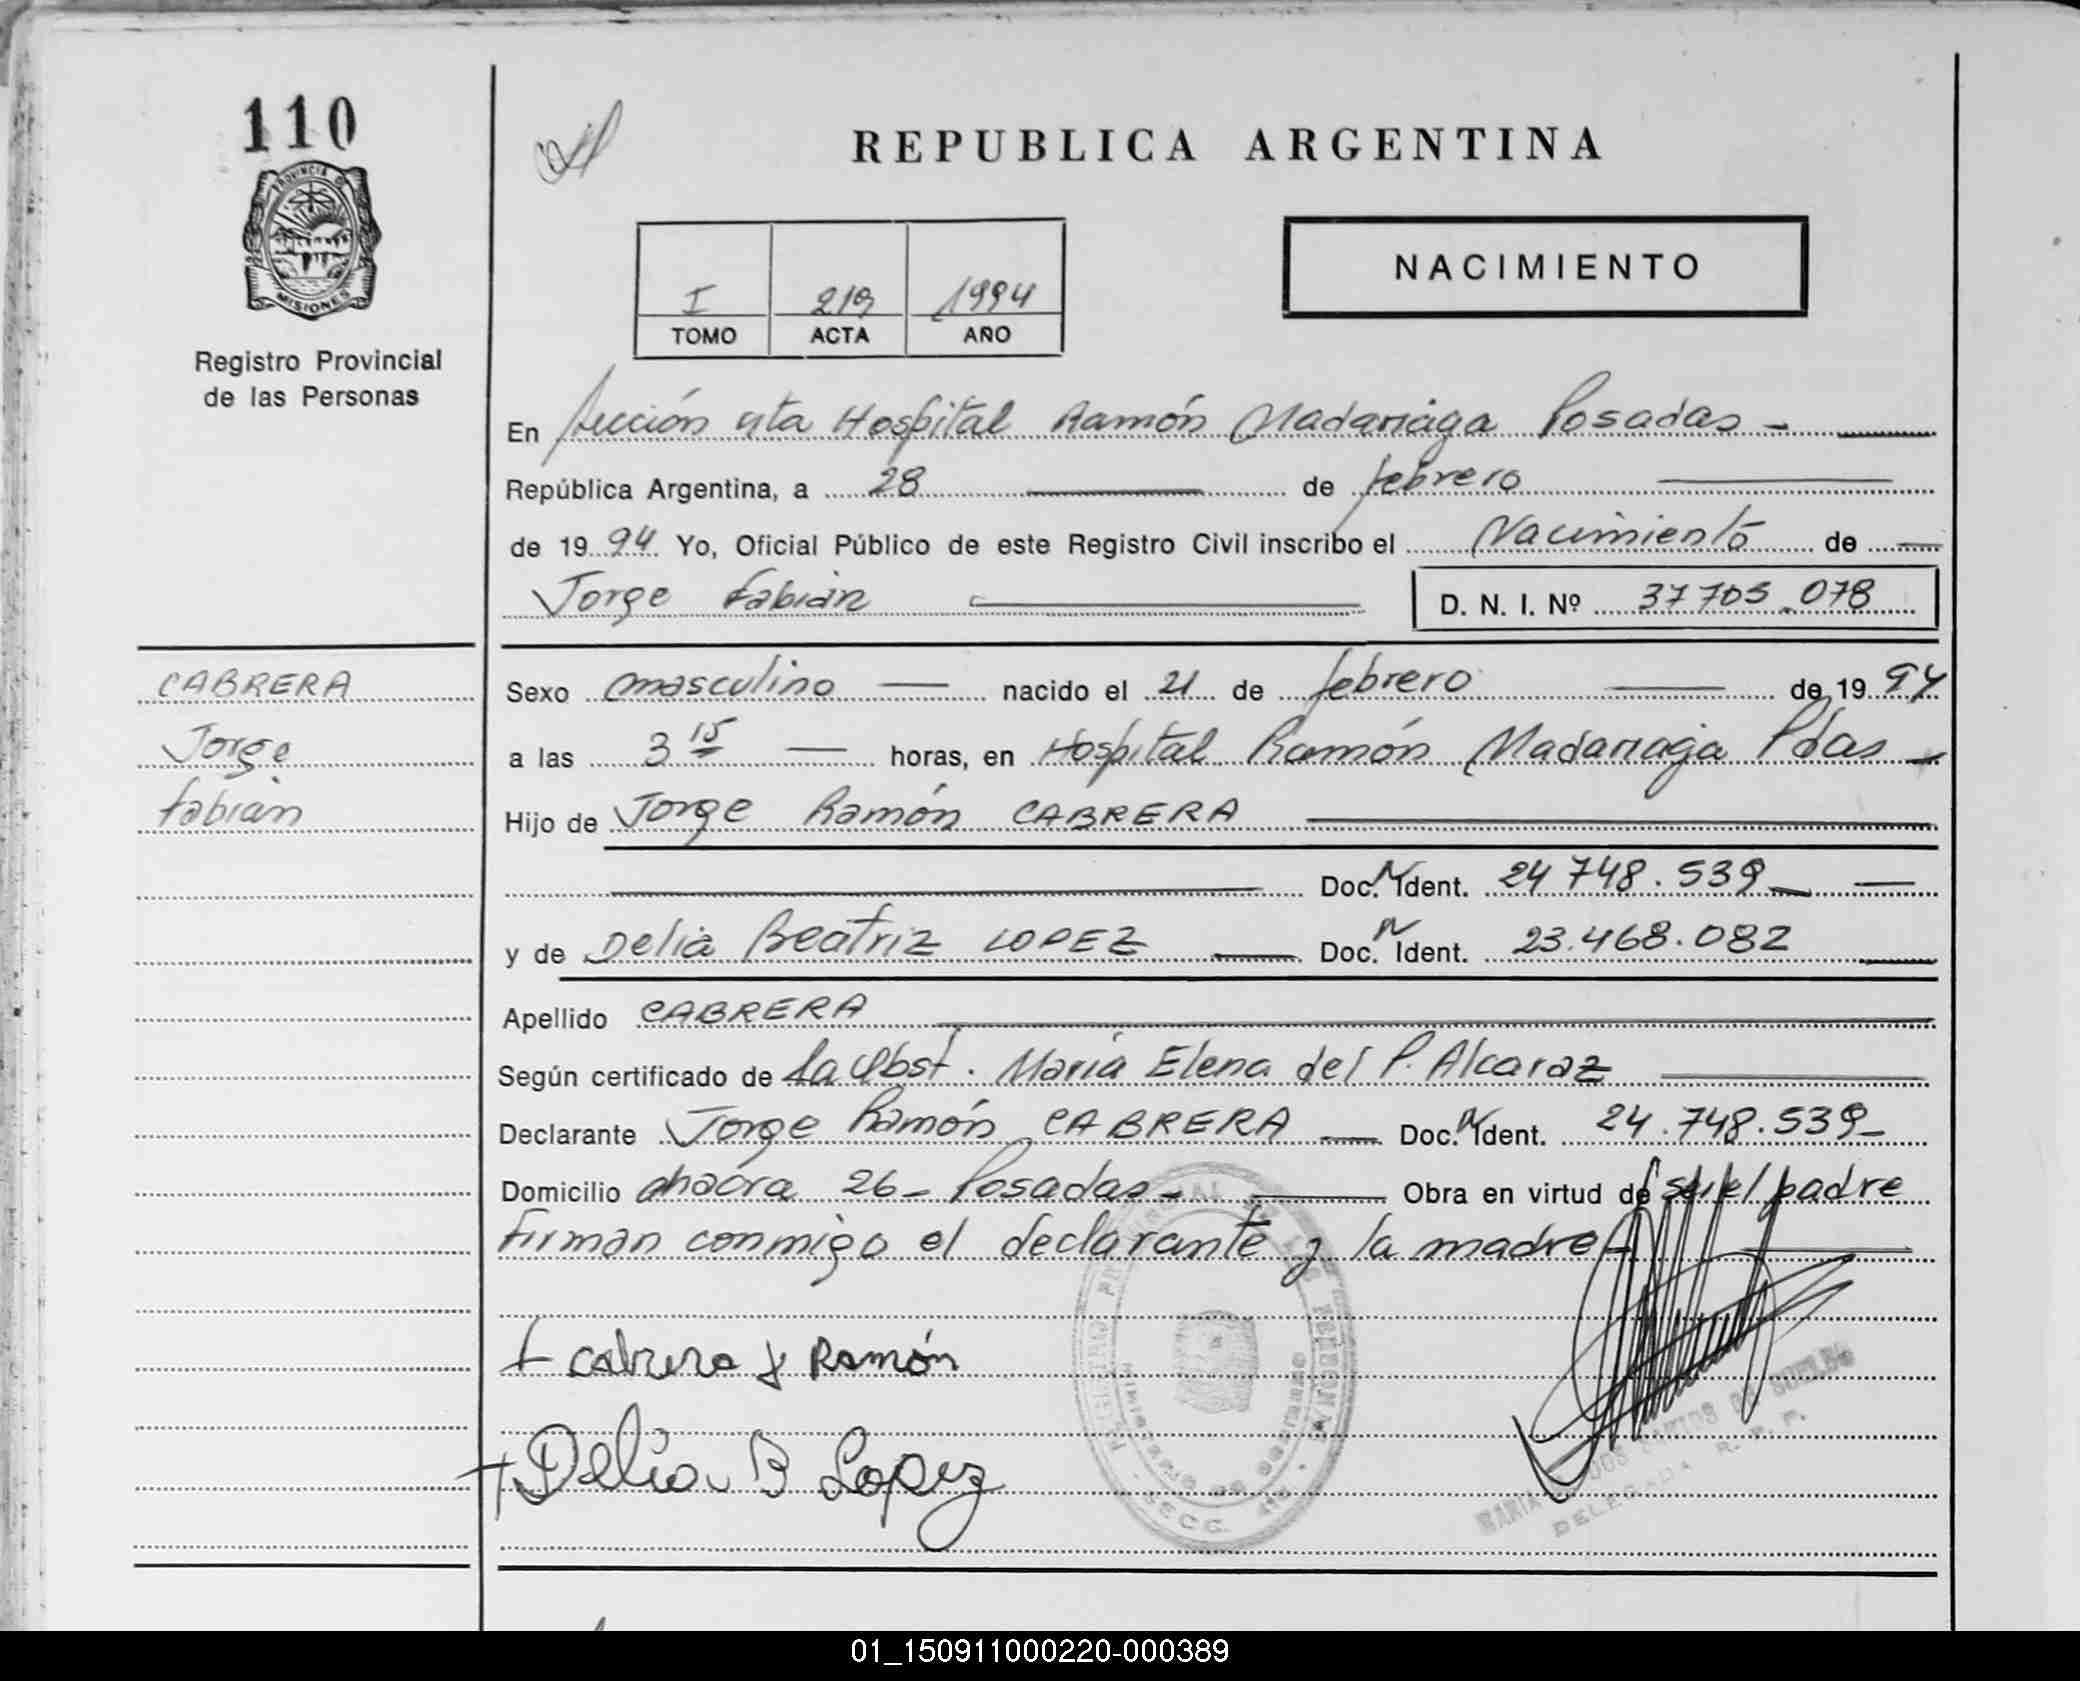 110
PROVINCIA DE
MISIONES
Registro Provincial
de las Personas
REPUBLICA ARGENTINA
NACIMIENTO
I 219 1994
TOMO ACTA AÑO
En Sección 4ta Hospital Ramón Madariaga Posadas -
República Argentina, a 28 de febrero
de 1994 Yo, Oficial Público de este Registro Civil inscribo el Nacimiento de
Jorge Fabián D. N. I. Nº 37705.078
CABRERA
Jorge
Fabián
Sexo masculino nacido el 21 de febrero de 1994
a las 3 15 horas, en Hospital Ramón Madariaga Pdas
Hijo de Jorge Ramón CABRERA
Doc. N Ident. 24 748.539
y de Delia Beatriz LOPEZ Doc. N Ident. 23.468.082
Apellido CABRERA
Según certificado de la Obst. María Elena del P. Alcaraz
Declarante Jorge Ramón CABRERA Doc. N Ident. 24.748.539
Domicilio chacra 26 - Posadas - Obra en virtud de ser el padre
Firman conmigo el declarante y la madre
+ Cabrera J Ramón
+ Delia B Lopez
REGISTRO PROVINCIAL DE LAS PERSONAS
MINISTERIO DE GOBIERNO
SECC. 4ta
MARIA
DELEGADA R. P. P.
01_150911000220-000389